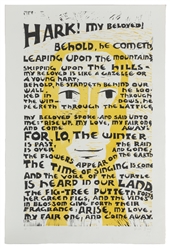 HARK! MY BELOVED!
BEHOLD, HE COMETH,
LEAPING UPON THE MOUNTAINS
SKIPPING UPON THE HILLS-
MY BELOVED IS LIKE A GAZELLE OR
A YOUNG HART;
BEHOLD, HE STANDETH BEHIND OUR
WALL, HE LOO-
KETH IN THROUGH
THE WIN- DOWS, HE
PEERETH THROUGH THE LATTICE.
MY BELOVED SPOKE AND SAID UNTO
ME: RISE UP, MY LOVE, MY FAIR ONE
AND COME AWAY.
FOR, LO, THE WINTER
IS PAST, THE RAIN
IS OVER AND GONE;
THE FLOWERS APPEAR ON THE EARTH
THE TIME OF SINGING IS COME
AND THE VOICE OF THE TURTLE
IS HEARD IN OUR LAND
THE FIG-TREE PUTTETH
HER GREEN FIGS, AND THE VINES IN
BLOSSOM GIVE FORTH THEIR
FRAGRANCE. ARISE, MY LOVE,
MY FAIR ONE, AND COME AWAY.